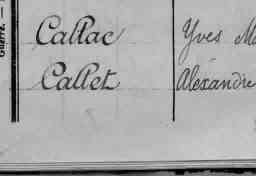 Guerre. —
Callac Yves
Callet Alexandre